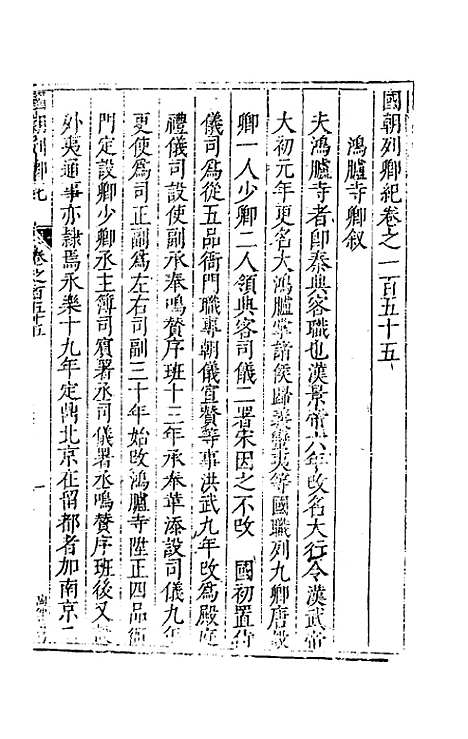 國朝列卿紀卷之一百五十五
鴻臚寺卿叙
夫鴻臚寺者即秦典客職也漢景帝六年改名大行令漢武帝
大初元年更名大鴻臚掌諸侯歸義蠻夷等國職列九卿唐設
卿一人少卿二人領典客司儀二署宋因之不改 國初置侍
儀司爲從五品衙門職專朝儀宣贊等事洪武九年改爲殿庭
禮儀司設使副承奉鳴贊序班十三年承奉革添設司儀九年
更使爲司正副爲左右司副三十年始改鴻臚寺陞正四品衙
門定設卿少卿丞主簿司賓署丞司儀署丞鳴贊序班後又
外夷通事亦隸焉永樂十九年定鼎北京在留都者加南京二
國朝列卿紀 卷之百五十五 一